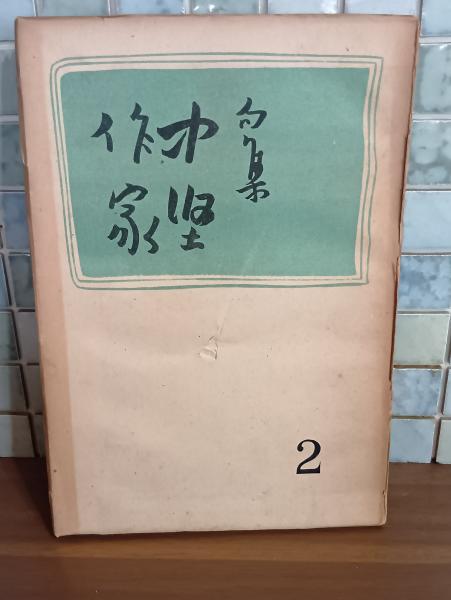 句集
中堅
作家
2